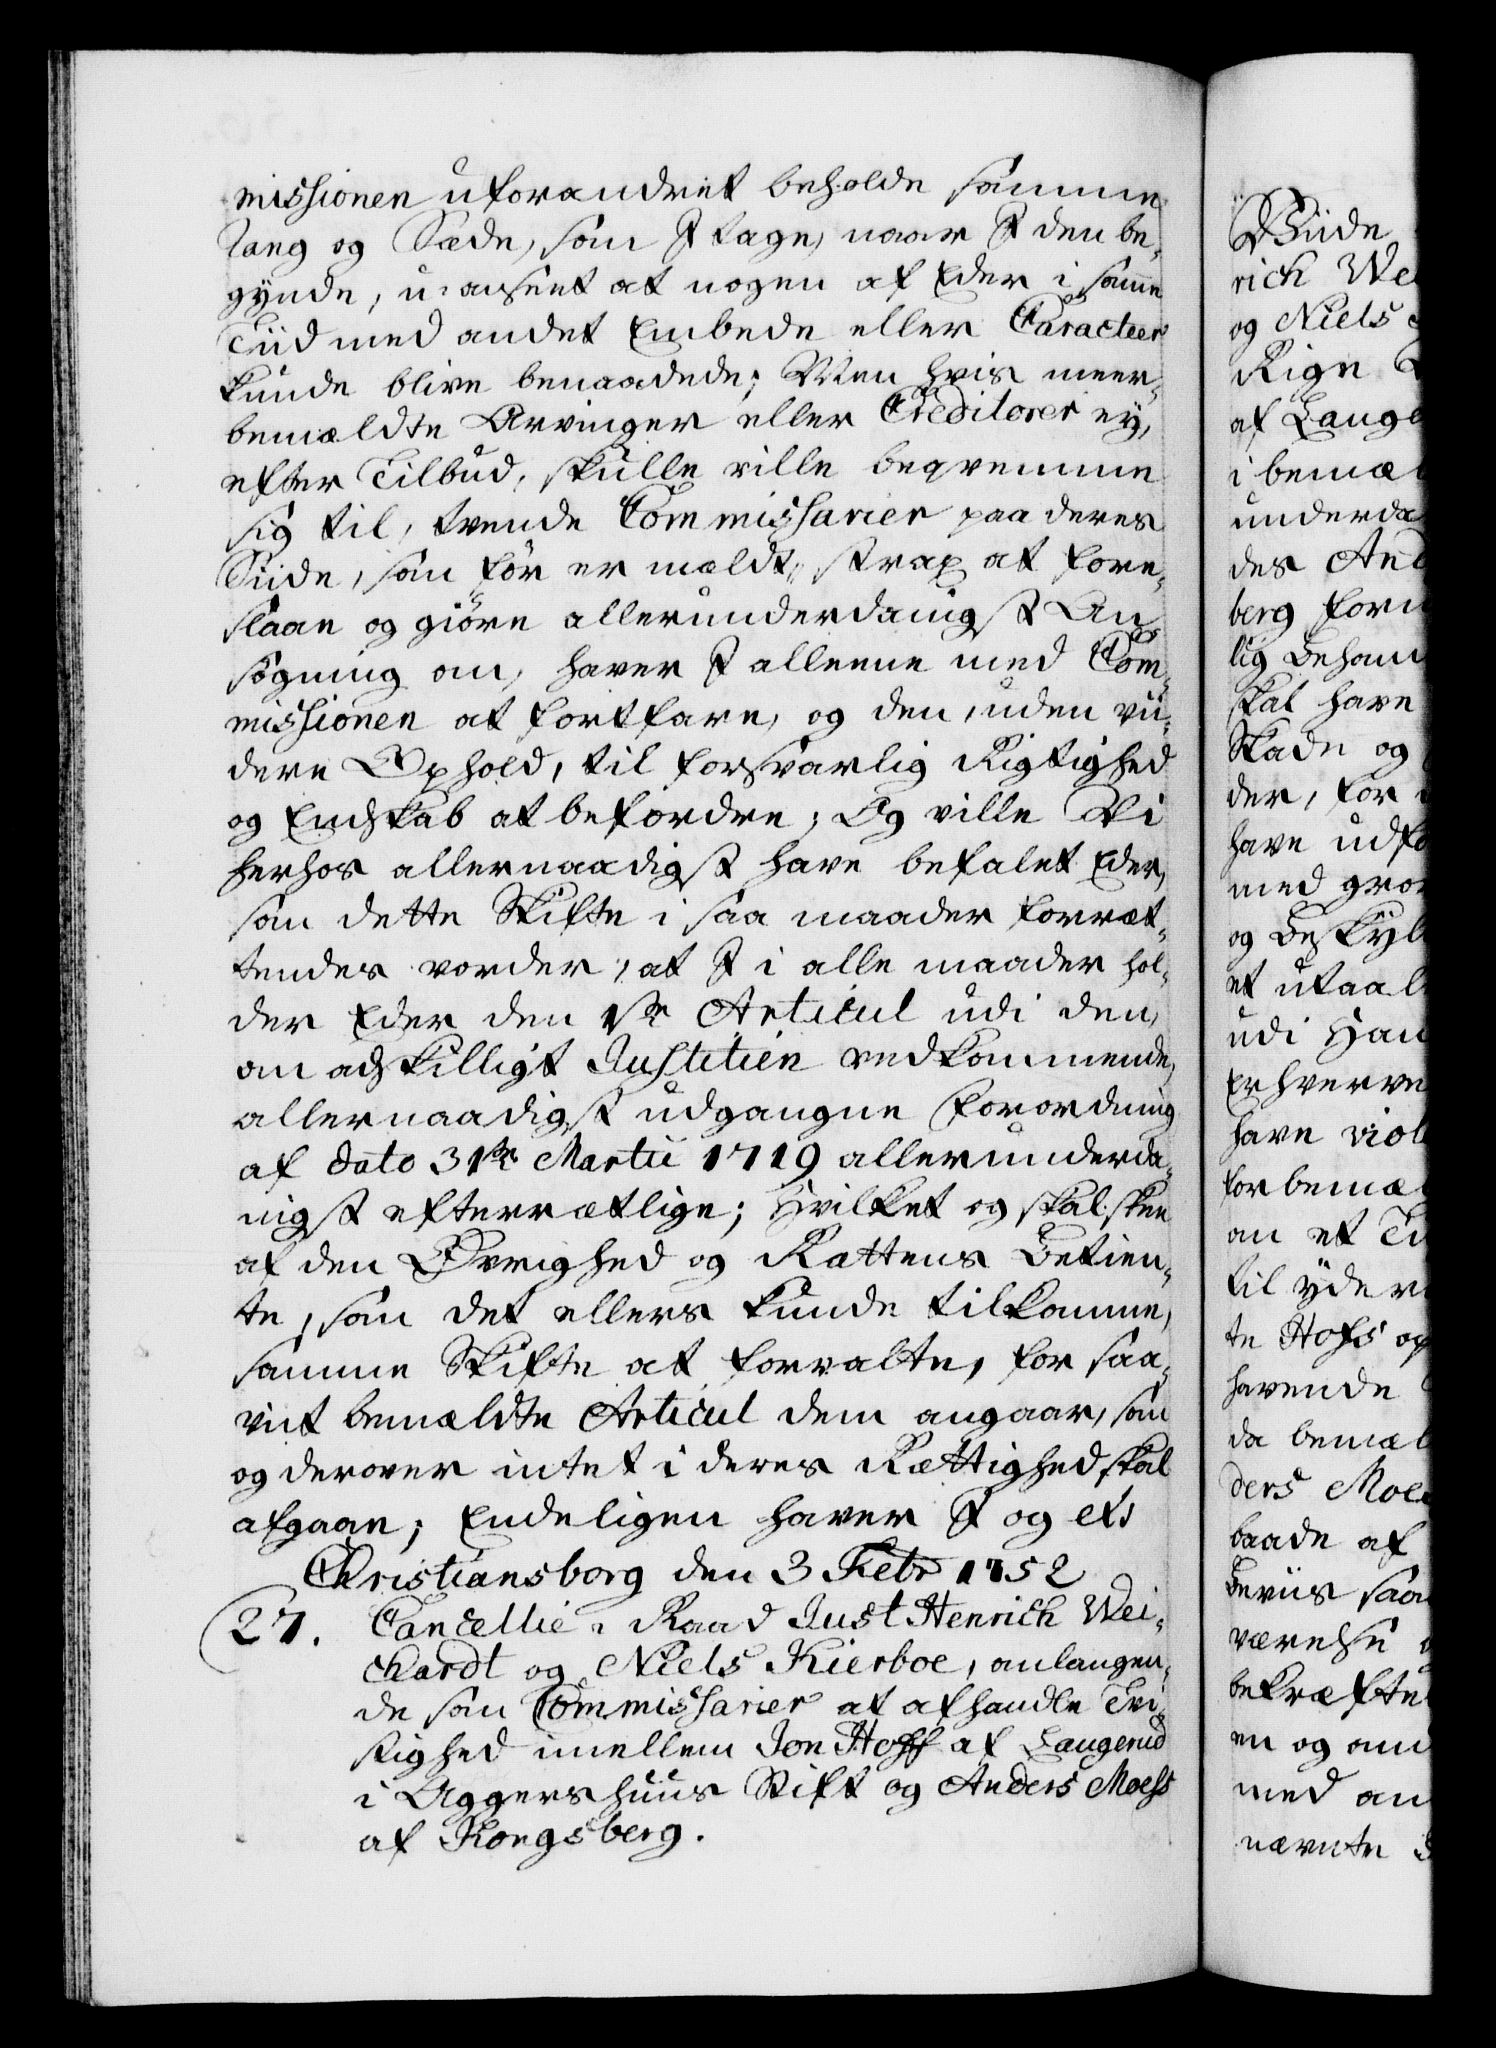 missionen uforandret beholde samme
rang og Sæde, som I tage, naar I den be-
gynde, u-anseet at nogen af Eder i samme
Tiid med andet Embede eller Caracteer
kunde blive benaadede; Men hvis meer-
bemældte Arvinger eller Creditorer ey,
efter Tilbud, skulle ville beqvemme
sig til, tvende Commissarier paa deres
Siide, som før er mældt, strax at fore-
slaae og giøre allerunderdanigst An-
søgning om, haver I alleene med Com-
missionen at fortfare, og den, uden vii-
dere Ophold, til forsvarlig Rigtighed
og Endskab at befordre; Og ville Vi
herhos allernaadigst have befalet Eder,
som dette Skifte i saa maader forræt-
tendes vorder, at I i alle maader hol-
der Eder den 1ste Articul udi den,
om adskilligt Justitien vedkommende,
allernaadigst udgangne Forordning
af dato 31te Martii 1719 allerunderda-
nigst efterrætlige; Hvilket og skal skee
af den Øvrighed og Rættens Betien-
te, som det ellers kunde tilkomme,
samme Skifte at forvalte, for saa-
vit bemældte Articul dem angaar, som
og derover intet i deres Rættighed skal
afgaae; Endeligen haver I og etc
Christiansborg den 3 Febr 1752
27. Cancellie-Raad Just Henrich Wei-
chardt og Niels Kierboe, anlangen-
de som Commissarier at afhandle Tvi-
stighed imellem Jon Hoff af Laugerud
i Aggershuus Stift og Anders Moess
af Kongsberg.
Giide
rich We
og Niels
Rige
af Lauge
i bemæl
underda
des And
berg for
lig Beham
skal have
Skade og
der, for
have udfo
med gro
og Beskyl
et utaal
udi Han
Erhverve
have viol
for bemæ
om et Ti
til yder
te Hofs op
havende
da bemæl
ders Moe
baade af
Beviis saa
værelse
bekræfte
en og and
med an
nævnte